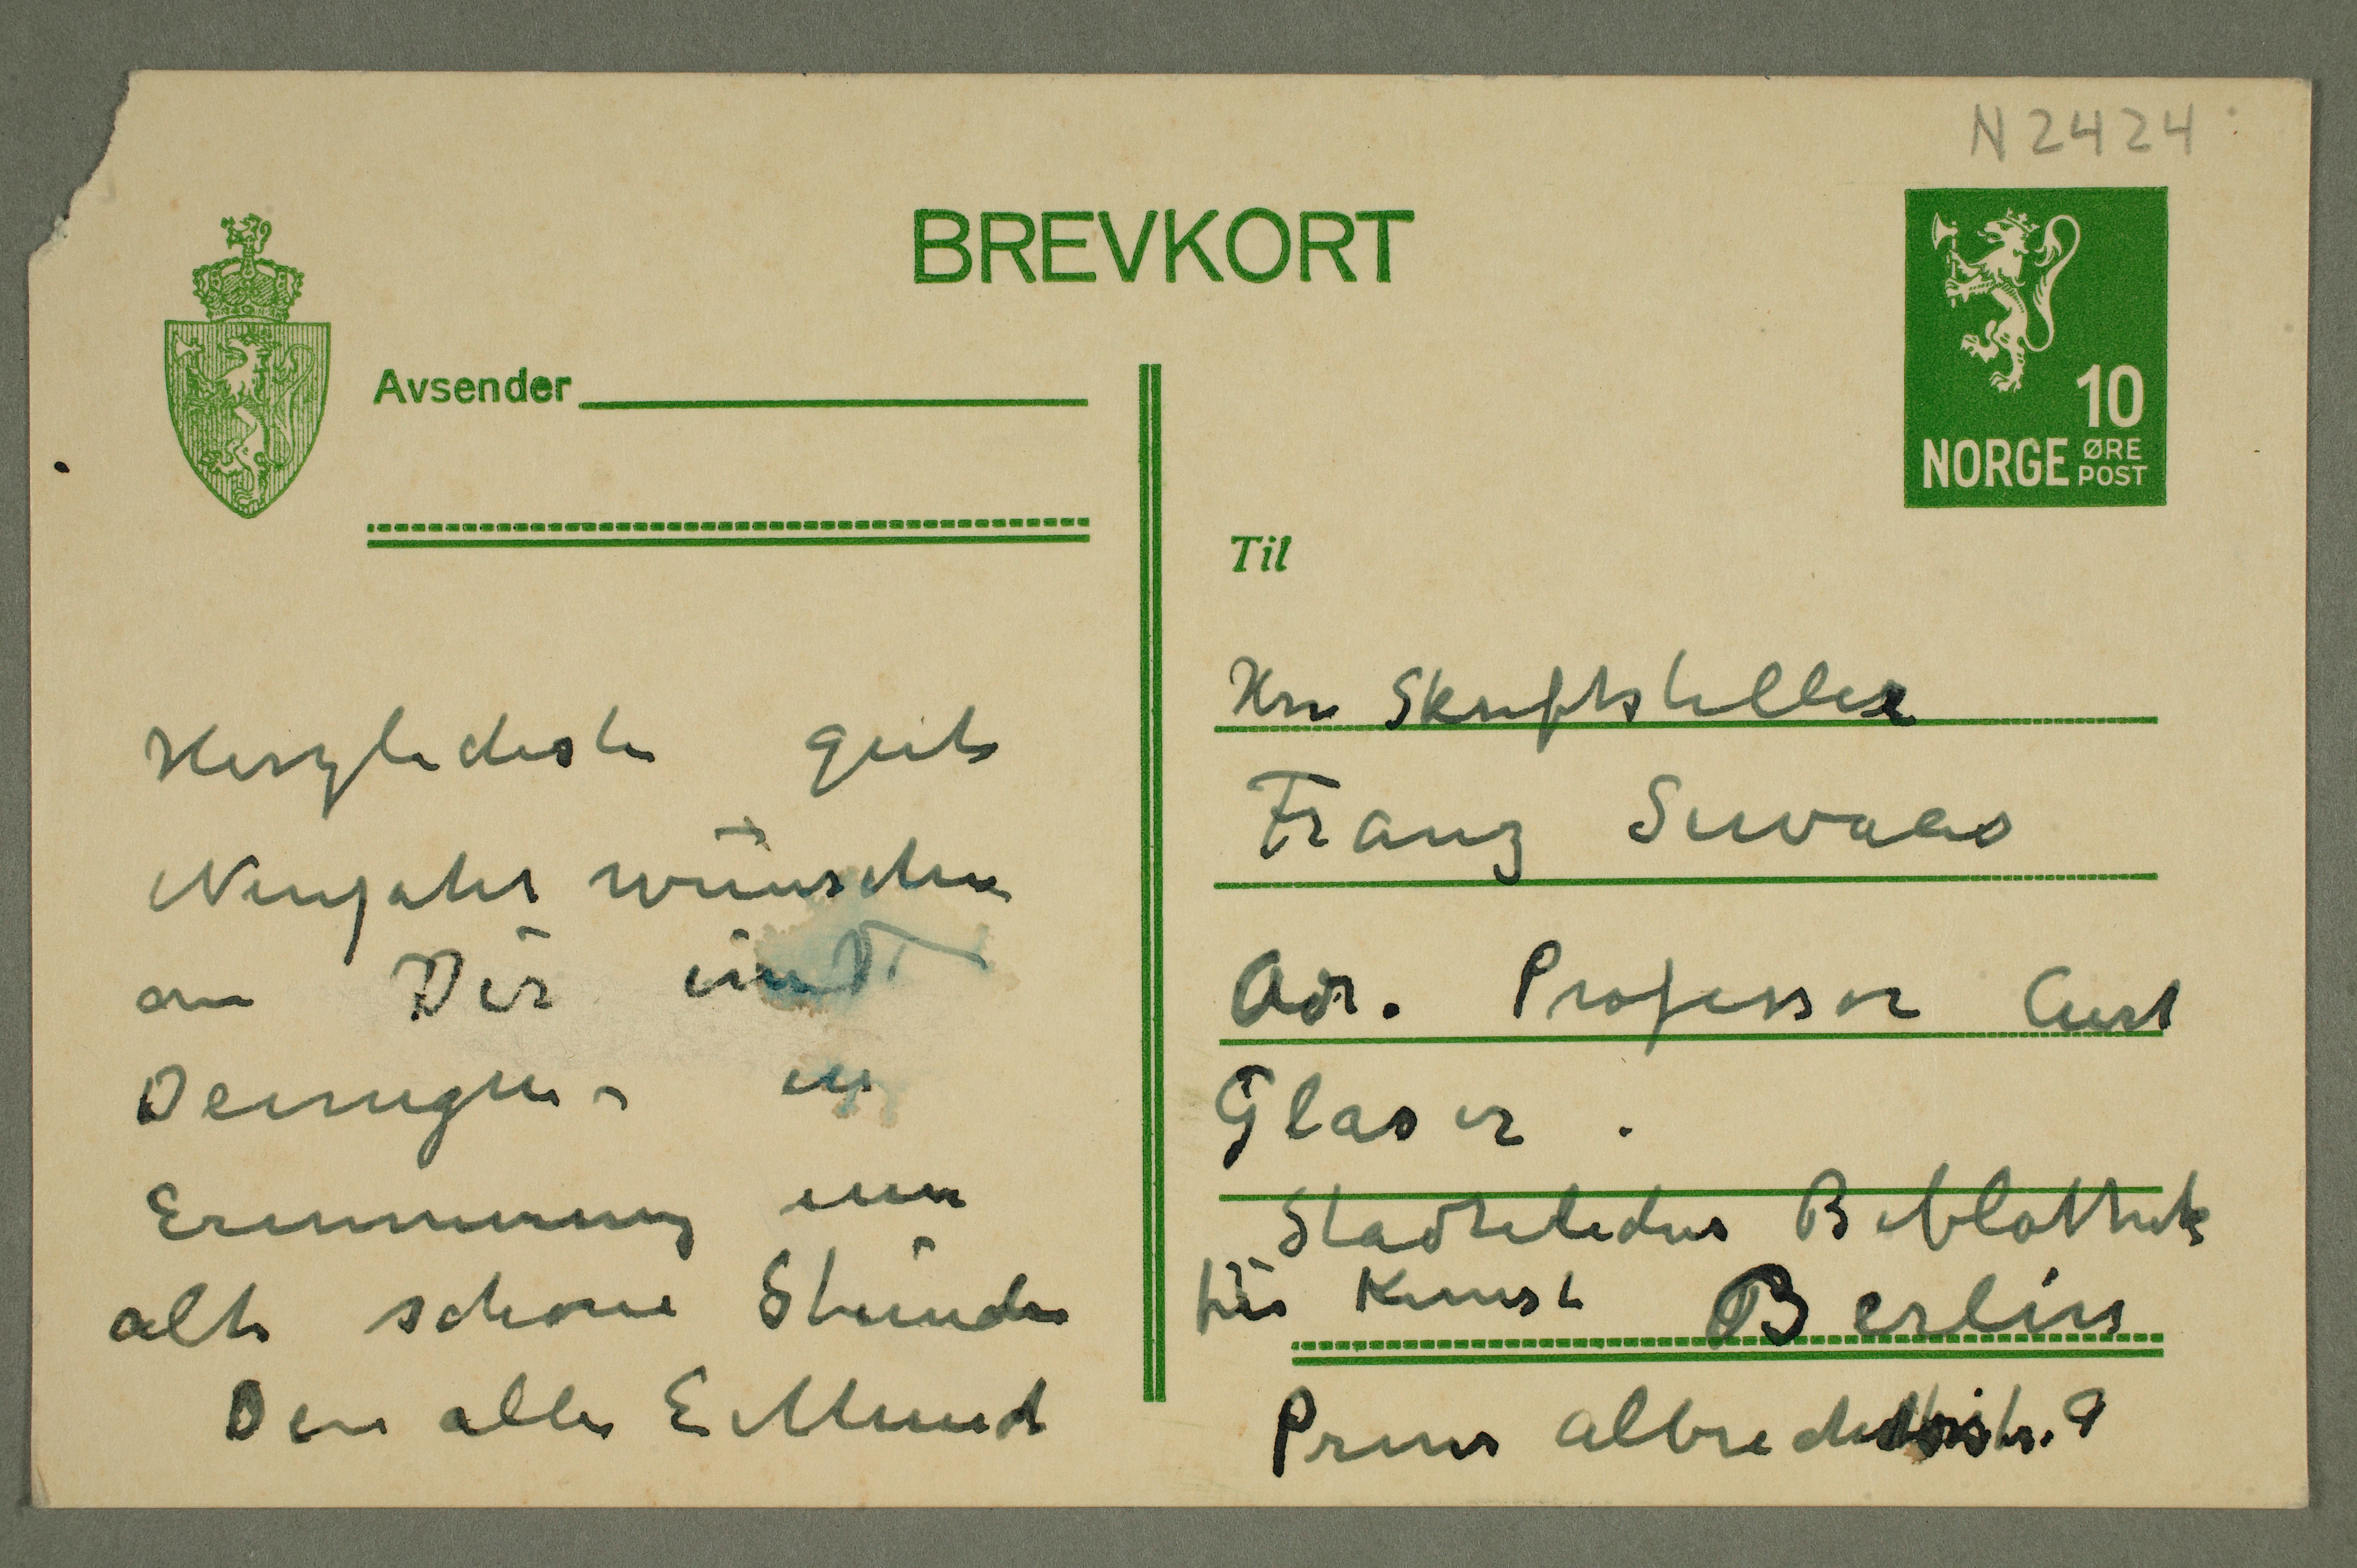 N 2424
BREVKORT
Avsender
10
NORGE ØRE
POST
Til
Herzlichste gute
Neujahr wünsche
an Dir und
Deinigen – in
Erinnerung
alte schöne Stunden
Dein alter E Munch
Hrn Skriftsteller
Franz Servaes
Adr. Professor Curt
Glaser.
Bibliothek
für Kunst Berlin
Prins Albrechtstr. 9